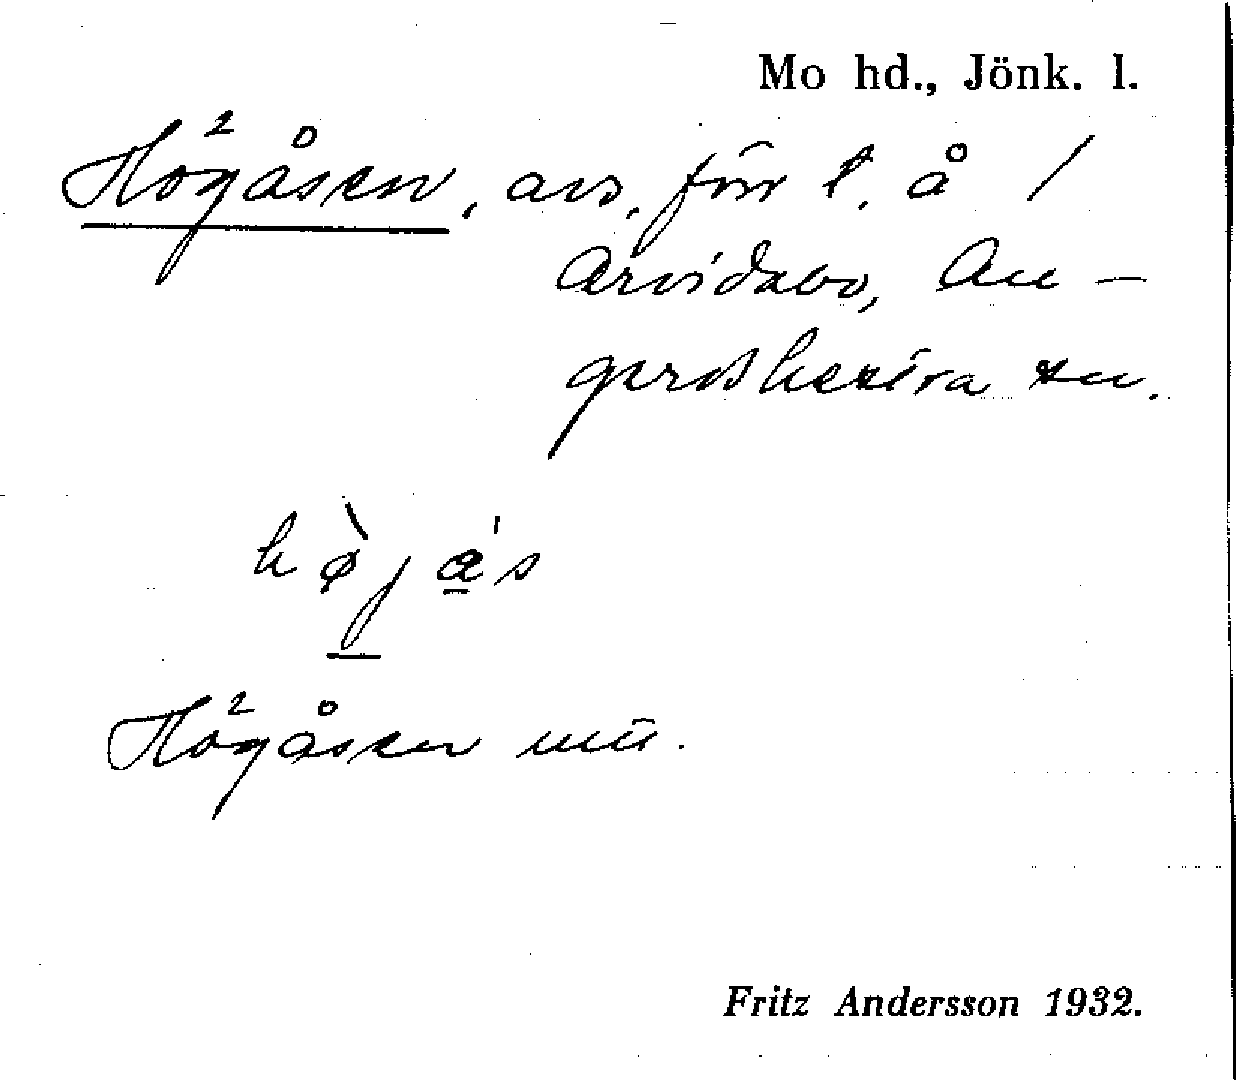 Mo hd., Jönk. l.
Högåsen, avs. förr t. å /
Arvidabo, An-
gerdshestra sn.
hø̀ja̲'s
Högåsen mü.
Fritz Andersson 1932.